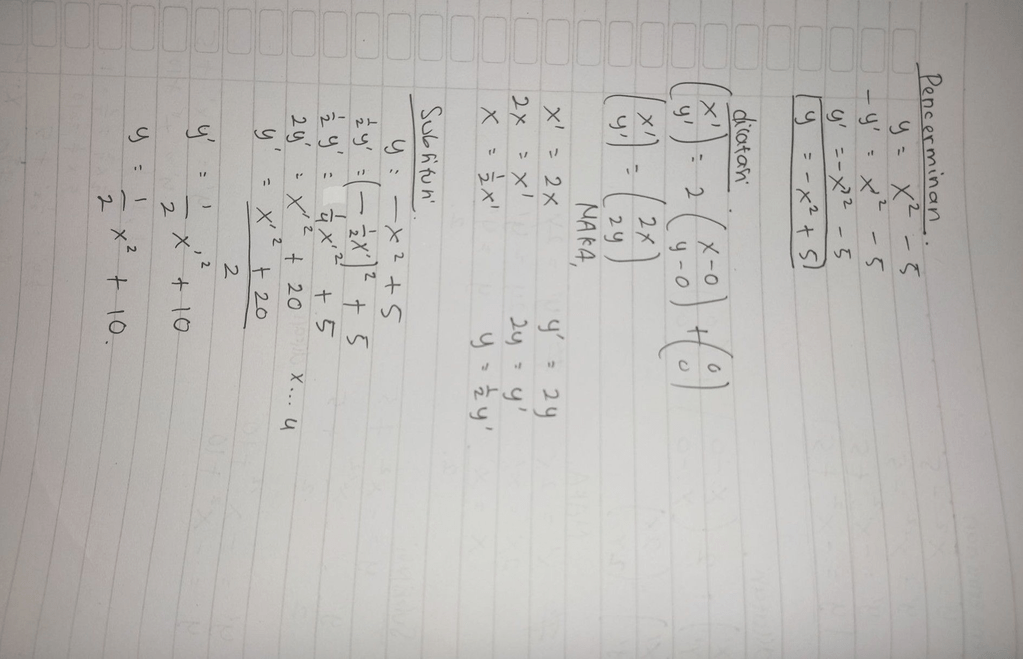 Pencerminan :
y = x² - 5
- y' = x'² - 5
y' = - x'² - 5
y = - x² + 5
dilatasi.
(x' y') = 2 (x-0 y-0) + (0 0)
(x' y') = (2x 2y)
MAKA,
x' = 2x y' = 2y
2x = x' 2y = y'
x = ½x' y = ½y'
Subtitusi.
y = - x² + 5
½y' = (- ½x')² + 5
½y' = ¼x'² + 5
2y' = x'² + 20 x...4
y' = x'² + 20 / 2
y' = 1/2 x'² + 10
y = 1/2 x² + 10.